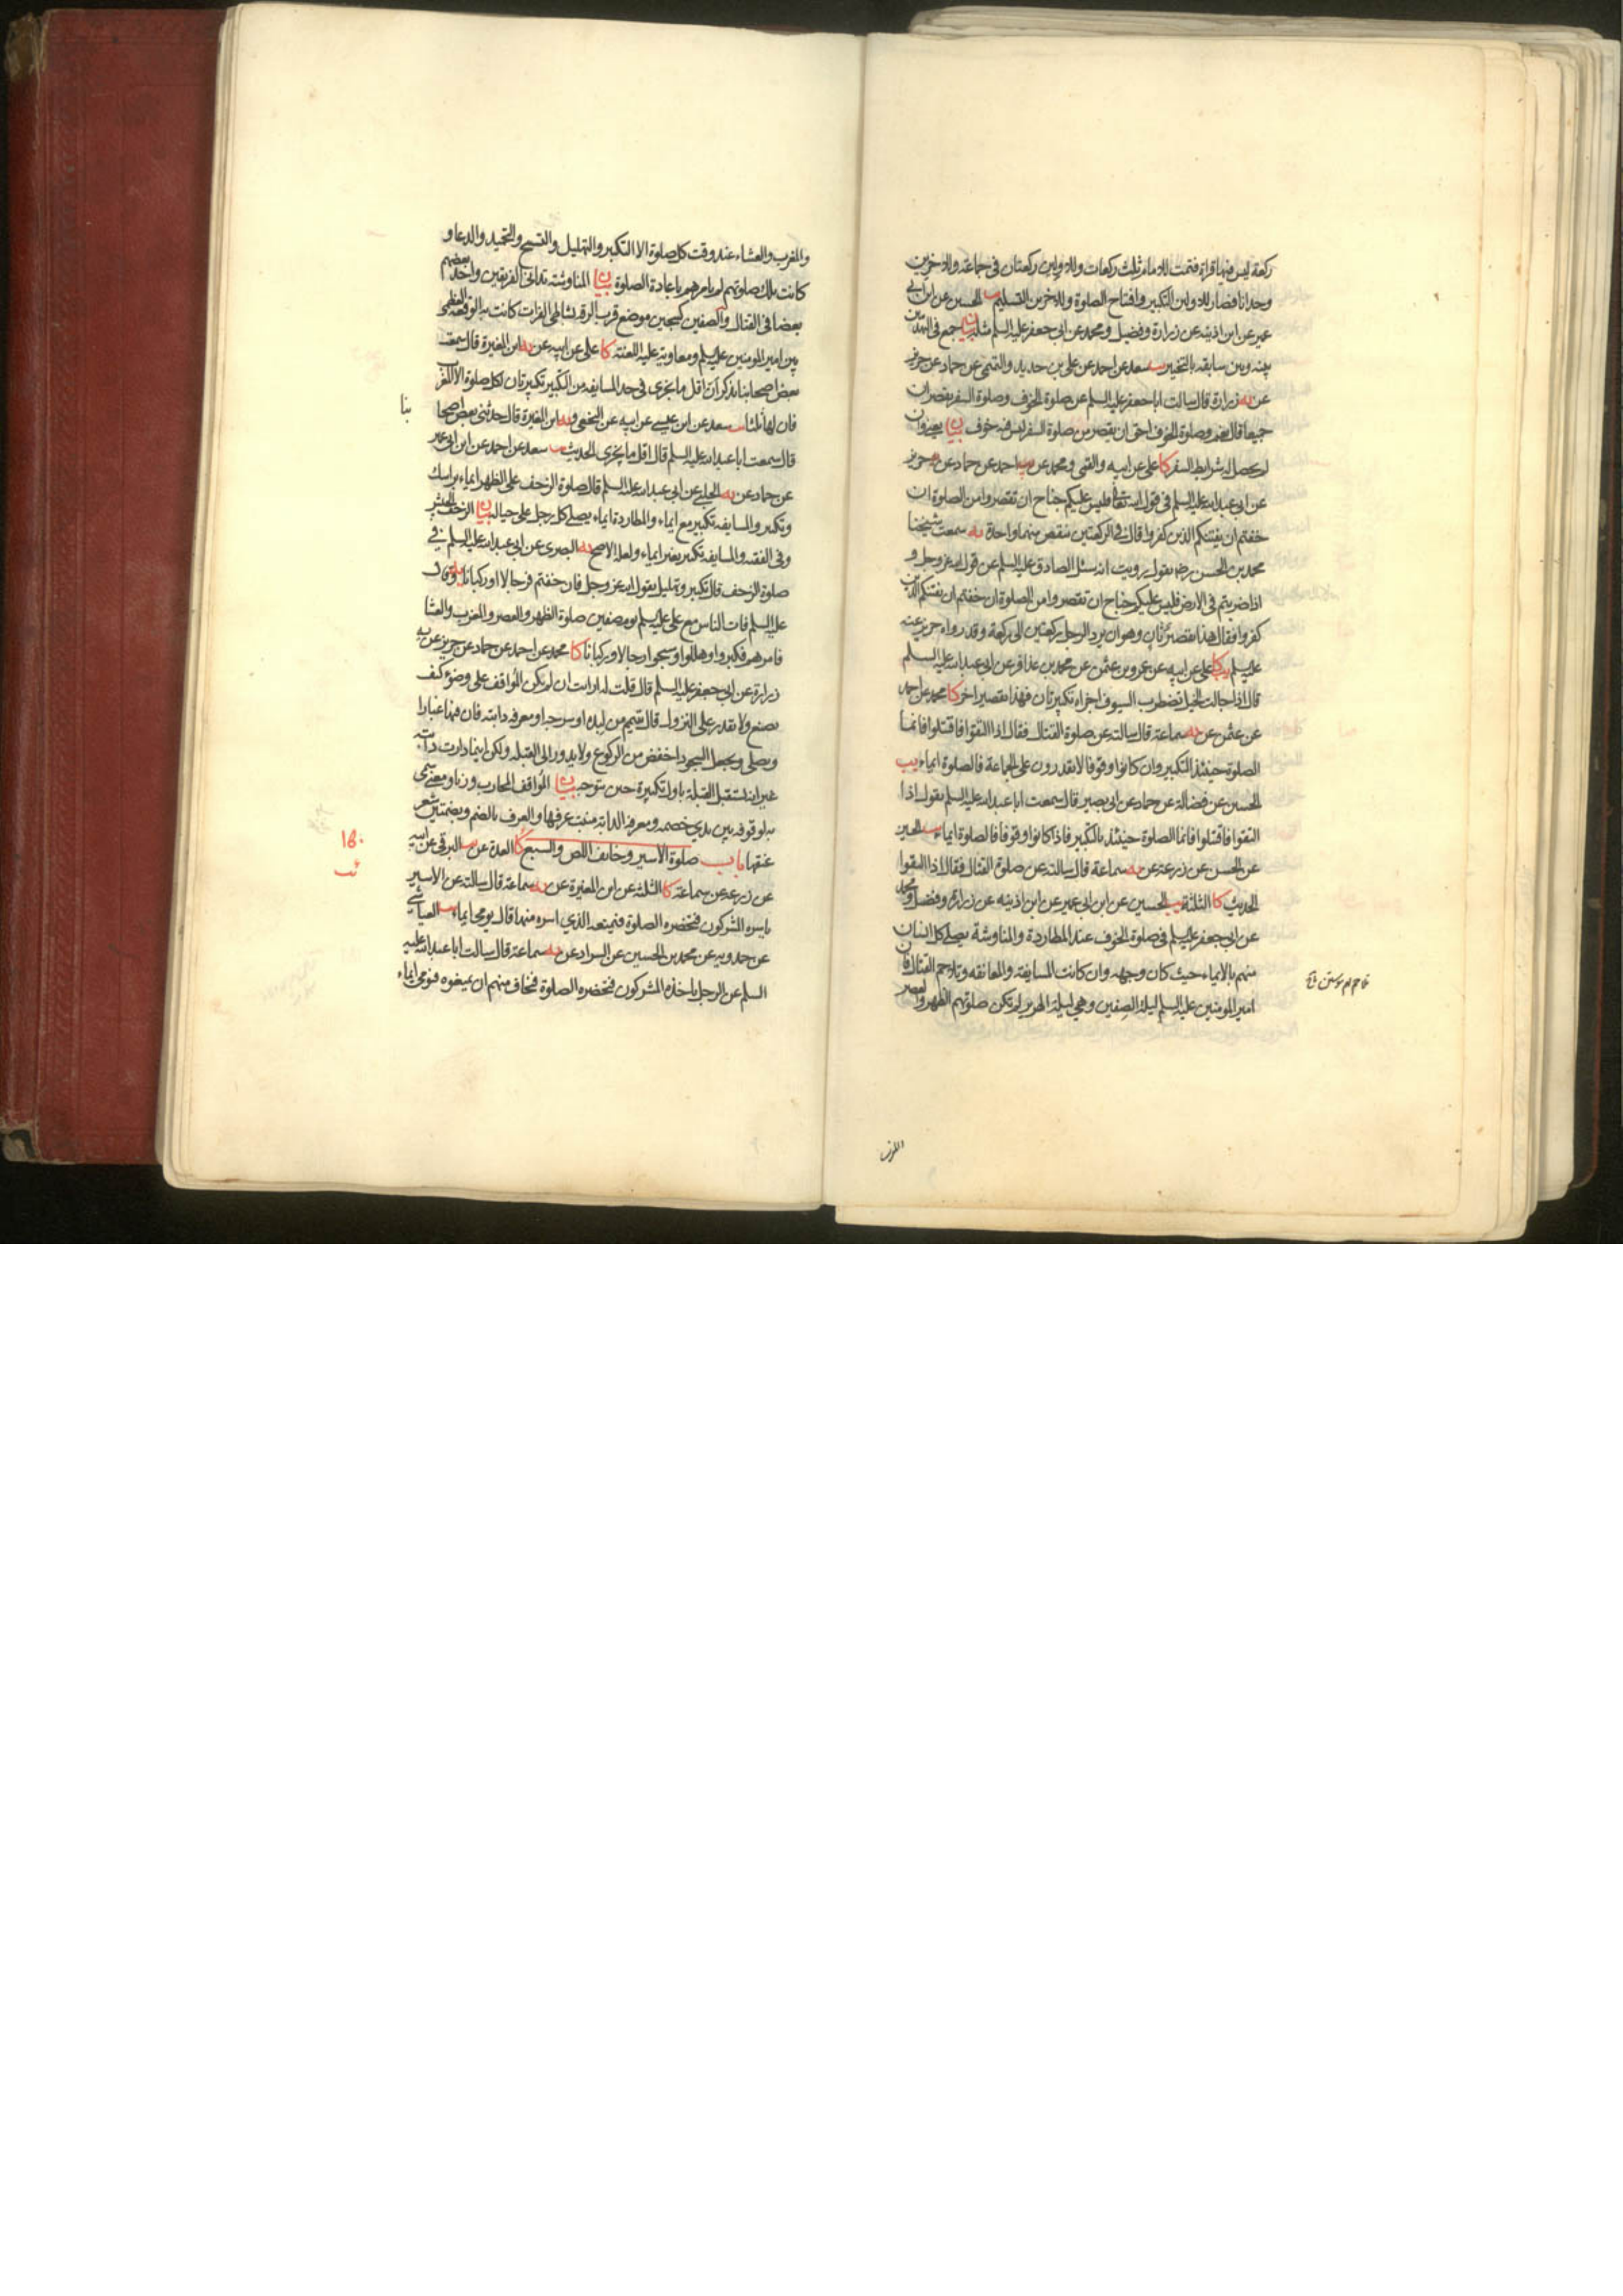 ركعة ليس فيها قراءة فتمت للامام ثلث ركعات وللاولين ركعتان فى جماعة وللاخرين
وحدانا فصار للاولين التكبير وافتتاح الصلوة وللاخرين التسليم يب الحسين عن ابن ابى
عمير عن ابن اذينه عن زرارة وفضيل ومحمد عن ابى جعفر عليه السلم مثله بيان جمع فى التهذيبين
بينه وبين سابقه بالتخيير يب سعد عن احمد عن على بن حديد والتميمى عن حماد عن حريز
عن يه زرارة قال سالت ابا جعفر عليه السلم عن صلوة الخوف وصلوة السفر يقصران
جميعا قال نعم وصلوة الخوف احق ان يقصر من صلوة السفر ليس فيه خوف بيان يعنى وان
لم يحصل شرايط السفر كا على عن ابيه والقمى ومحمد عن يب احمد عن حماد عن يه حريز
عن ابى عبدالله عليه السلم فى قول الله تعالى فليس عليكم جناح ان تقصروا من الصلوة ان
خفتم ان يفتنكم الذين كفروا قال فى الركعتين ينقص منهما واحدة يه سمعت شيخنا
محمد بن الحسن رضه يقول رويت انه سئل الصادق عليه السلم عن قول الله عز وجل و
اذا ضربتم فى الارض فليس عليكم جناح ان تقصروا من الصلوة ان خفتم ان يفتنكم الذين
كفروا فقال هذا تقصير ثان وهو ان يرد الرجل ركعتين الى ركعة وقد رواه حريز عنه
عليه السلم يب كا على عن ابيه عن عمرو بن عثمن عن محمد بن عذافر عن ابى عبدالله عليه السلم
قال اذا جالت الخيل تضطرب السيوف اجزاه تكبيرتان فهذا تقصير اخر كا محمد عن احمد
عن عثمن عن يه سماعة قال سالته عن صلوة القتال فقال اذا التقوا فاقتتلوا فانما
الصلوة حينئذ التكبير وان كانوا وقوفا لا يقدرون على الجماعة فالصلوة ايماء يب
الحسين عن فضالة عن حماد عن ابى بصير قال سمعت ابا عبدالله عليه السلم يقول اذا
التقوا فاقتتلوا فانما الصلوة حينئذ بالتكبير فاذا كانوا وقوفا فالصلوة ايماء يب الحسين
عن الحسن عن زرعة عن يه سماعة قال سالته عن صلوة القتال فقال اذا التقوا
الحديث كا الثلثة يب الحسين عن ابن ابى عمير عن ابن اذينه عن زرارة وفضيل ومحمد
عن ابى جعفر عليه السلم فى صلوة الخوف عند المطاردة والمناوشة يصلى كل انسان
منهم بالايماء حيث كان وجهه وان كانت المسايفة والمعانقة وتلاحم القتال فان
امير المومنين عليه السلم ليلة الصفين وهى ليلة الهرير لم تكن صلوتهم الظهر والعصر
والمغرب والعشاء عند وقت كل صلوة الا التكبير والتهليل والتسبيح والتحميد والدعاء و
كانت تلك صلوتهم لم يامرهم باعادة الصلوة بيان المناوشة تدانى الفريقين واخذ بعضهم
بعضا فى القتال والصفين كسجين موضع قرب الرقه بشاطى الفرات كانت به الوقعة العظمى
بين امير المومنين عليه السلم ومعاوية عليه اللعنة كا على عن ابيه عن يه ابن المغيرة قال سمعت
بعض اصحابنا يذكر ان اقل ما يجزى فى حد المسايفه من التكبير تكبيرتان لكل صلوة الا المغرب
فان لها ثلثا يب سعد عن ابن عيسى عن ابيه عن النخعى ويه ابن المغيرة قال حدثنى بعض اصحا
بنا
قال سمعت ابا عبدالله عليه السلم قال اقل ما يجزى الحديث يب سعد عن احمد عن ابن ابى عمير
عن حماد عن يه الحلبى عن ابى عبدالله عليه السلم قال صلوة الزحف على الظهر ايماء براسك
وتكبير والمسايفه تكبير مع ايماء والمطاردة ايماء يصلى كل رجل على حياله بيان الزحف العسكر
وفى الفقيه والمسايفه تكبير بغير ايماء ولعله الاصح يه البصرى عن ابى عبدالله عليه السلم فى
صلوة الزحف قال تكبير وتهليل يقول الله عز وجل فان خفتم فرجالا او ركبانا يه وقال
عليه السلم فات الناس مع على عليه السلم يوم صفين صلوة الظهر والعصر والمغرب والعشا
فامرهم فكبروا وهللوا وسبحوا رجالا وركبانا كا محمد عن احمد عن حماد عن حريز عن يه
زرارة عن ابى جعفر عليه السلم قال قلت له ارايت ان لم يكن المُواقف على وضوء كيف
يصنع ولا يقدر على النزول قال يتيمم من لبده او سرجه او معرفه دابته فان فيها غبارا
ويصلى ويجعل السجود اخفض من الركوع ولا يدور الى القبلة ولكن اينما دارت دابته
غير انه يستقبل القبلة باول تكبيرة حين يتوجه بيان المُواقف المحارب وزنا ومعنى سمى
به لوقوفه بين يدى خصمه ومعرفه الدابه منبت عرفها والعرف بالضم وبضمتين شعر
عنقها باب صلوة الاسير وخايف اللص والسبع كا العدة عن يب البرقى عن ابيه
عن زرعه عن سماعة كا الثلثه عن ابن المغيرة عن يه سماعة قال سالته عن الاسير
ياسره المشركون فتحضره الصلوة فيمنعه الذي اسره منها قال يومى ايماء يب العياشى
عن حمدويه عن محمد بن الحسين عن السراد عن يه سماعة قال سالت ابا عبدالله عليه
السلم عن الرجل ياخذه المشركون فتحضره الصلوة فيخاف منهم ان يمنعوه فيومى ايماء